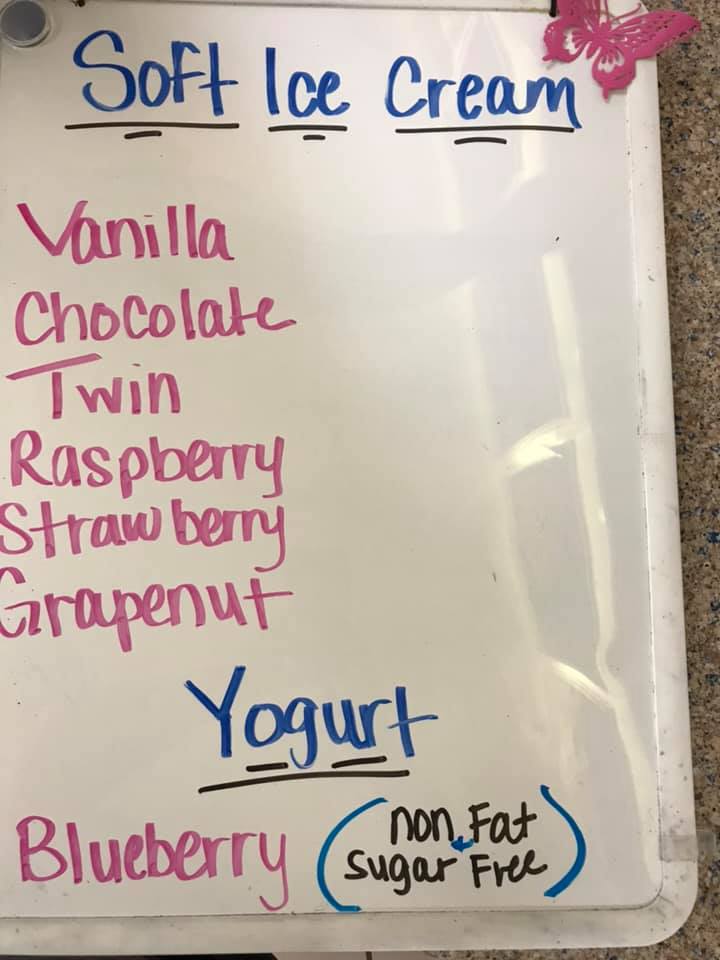 Soft Ice Cream
Vanilla
Chocolate
Twin
Raspberry
Strawberry
Grapenut
Yogurt
Blueberry (non Fat
sugar Free)